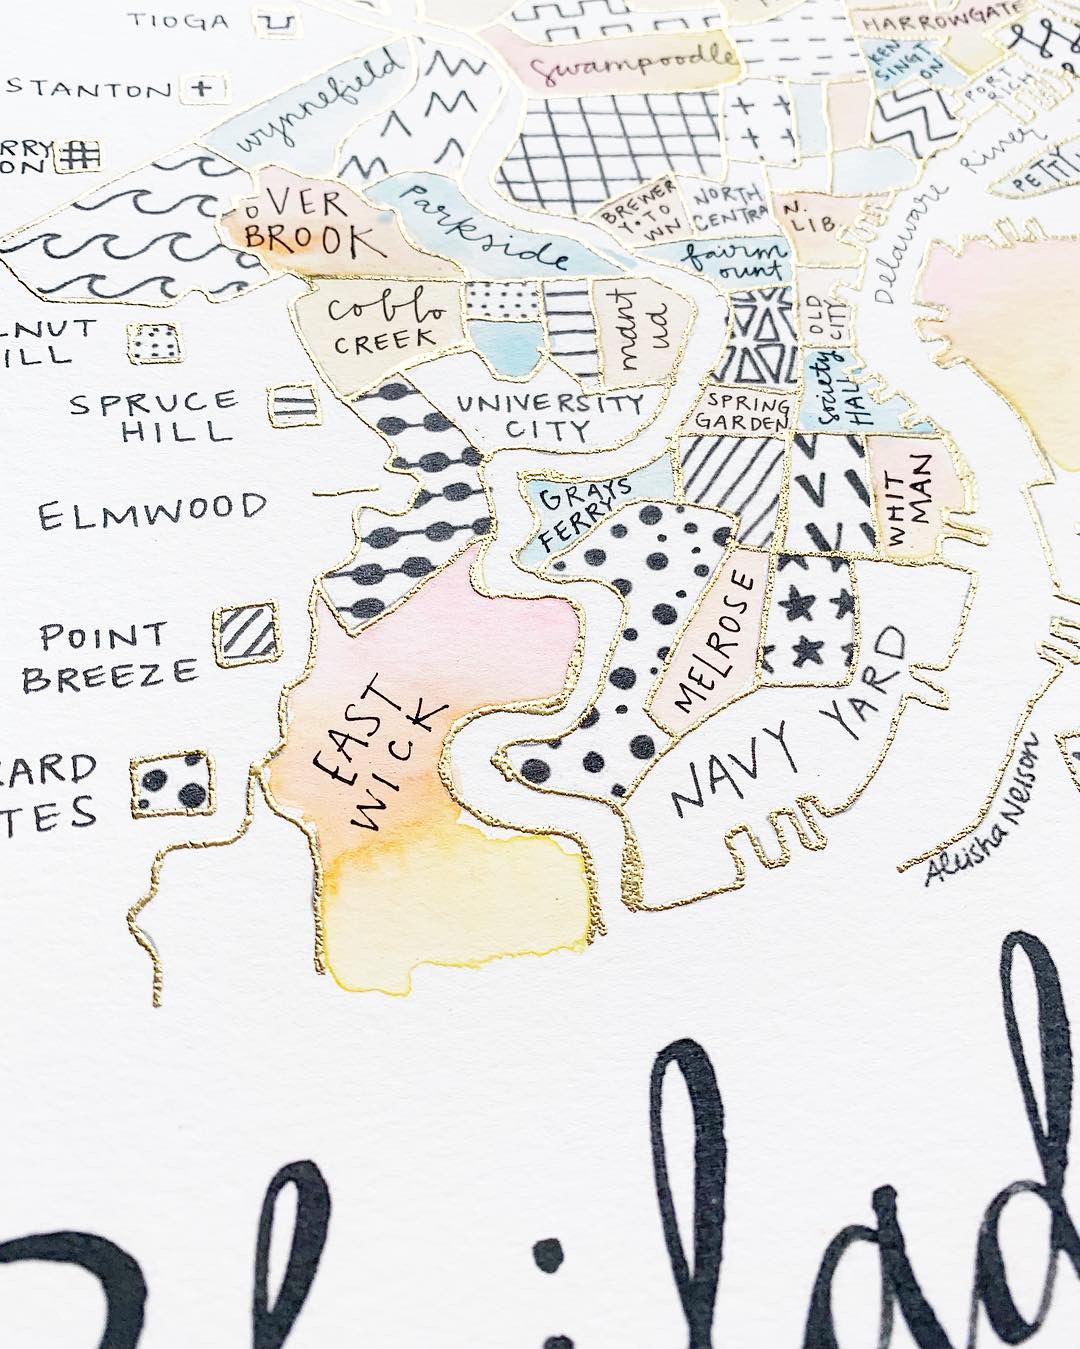 TIOGA
STANTON
RRY
ON
LNUT
ILL
SPRUCE
HILL
ELMWOOD
POINT
BREEZE
ARD
TES
HARROWGATE
KEN
SINGT
ON
PORT
RICH
Swampoodle
wynnefield
Delaware River
PETTY
OVER
BROOK
Parkside
BREWER
Y·TO
WN
NORTH
CENTRA
N.
LIB.
fairm
ount
Cobbs
CREEK
mant
ua
OLD
CITY
UNIVERSITY
CITY
SPRING
GARDEN
Society
HALL
GRAYS
FERRY
WHIT
MAN
MELROSE
EAST
WICK
NAVY YARD
Aleisha Nelson
Philad